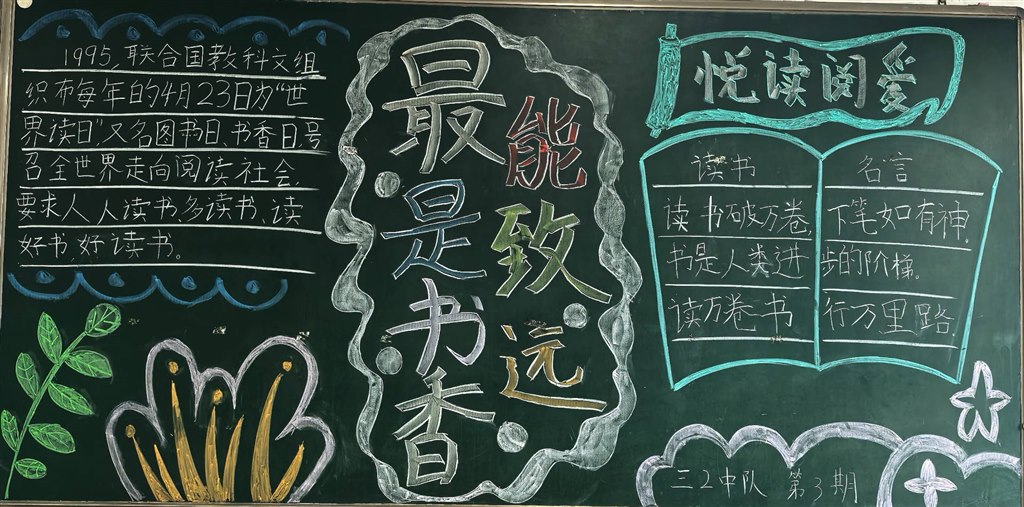 1995,联合国教科文组
织布每年的4月23日为“世
界读日”又名图书日、书香日,号
召全世界走向阅读社会,
要求人人读书、多读书、读
好书、好读书。
最是书香
能致远
悦读阅爱
读书 名言
读书破万卷,下笔如有神。
书是人类进步的阶梯。
读万卷书 行万里路
三2中队 第3期